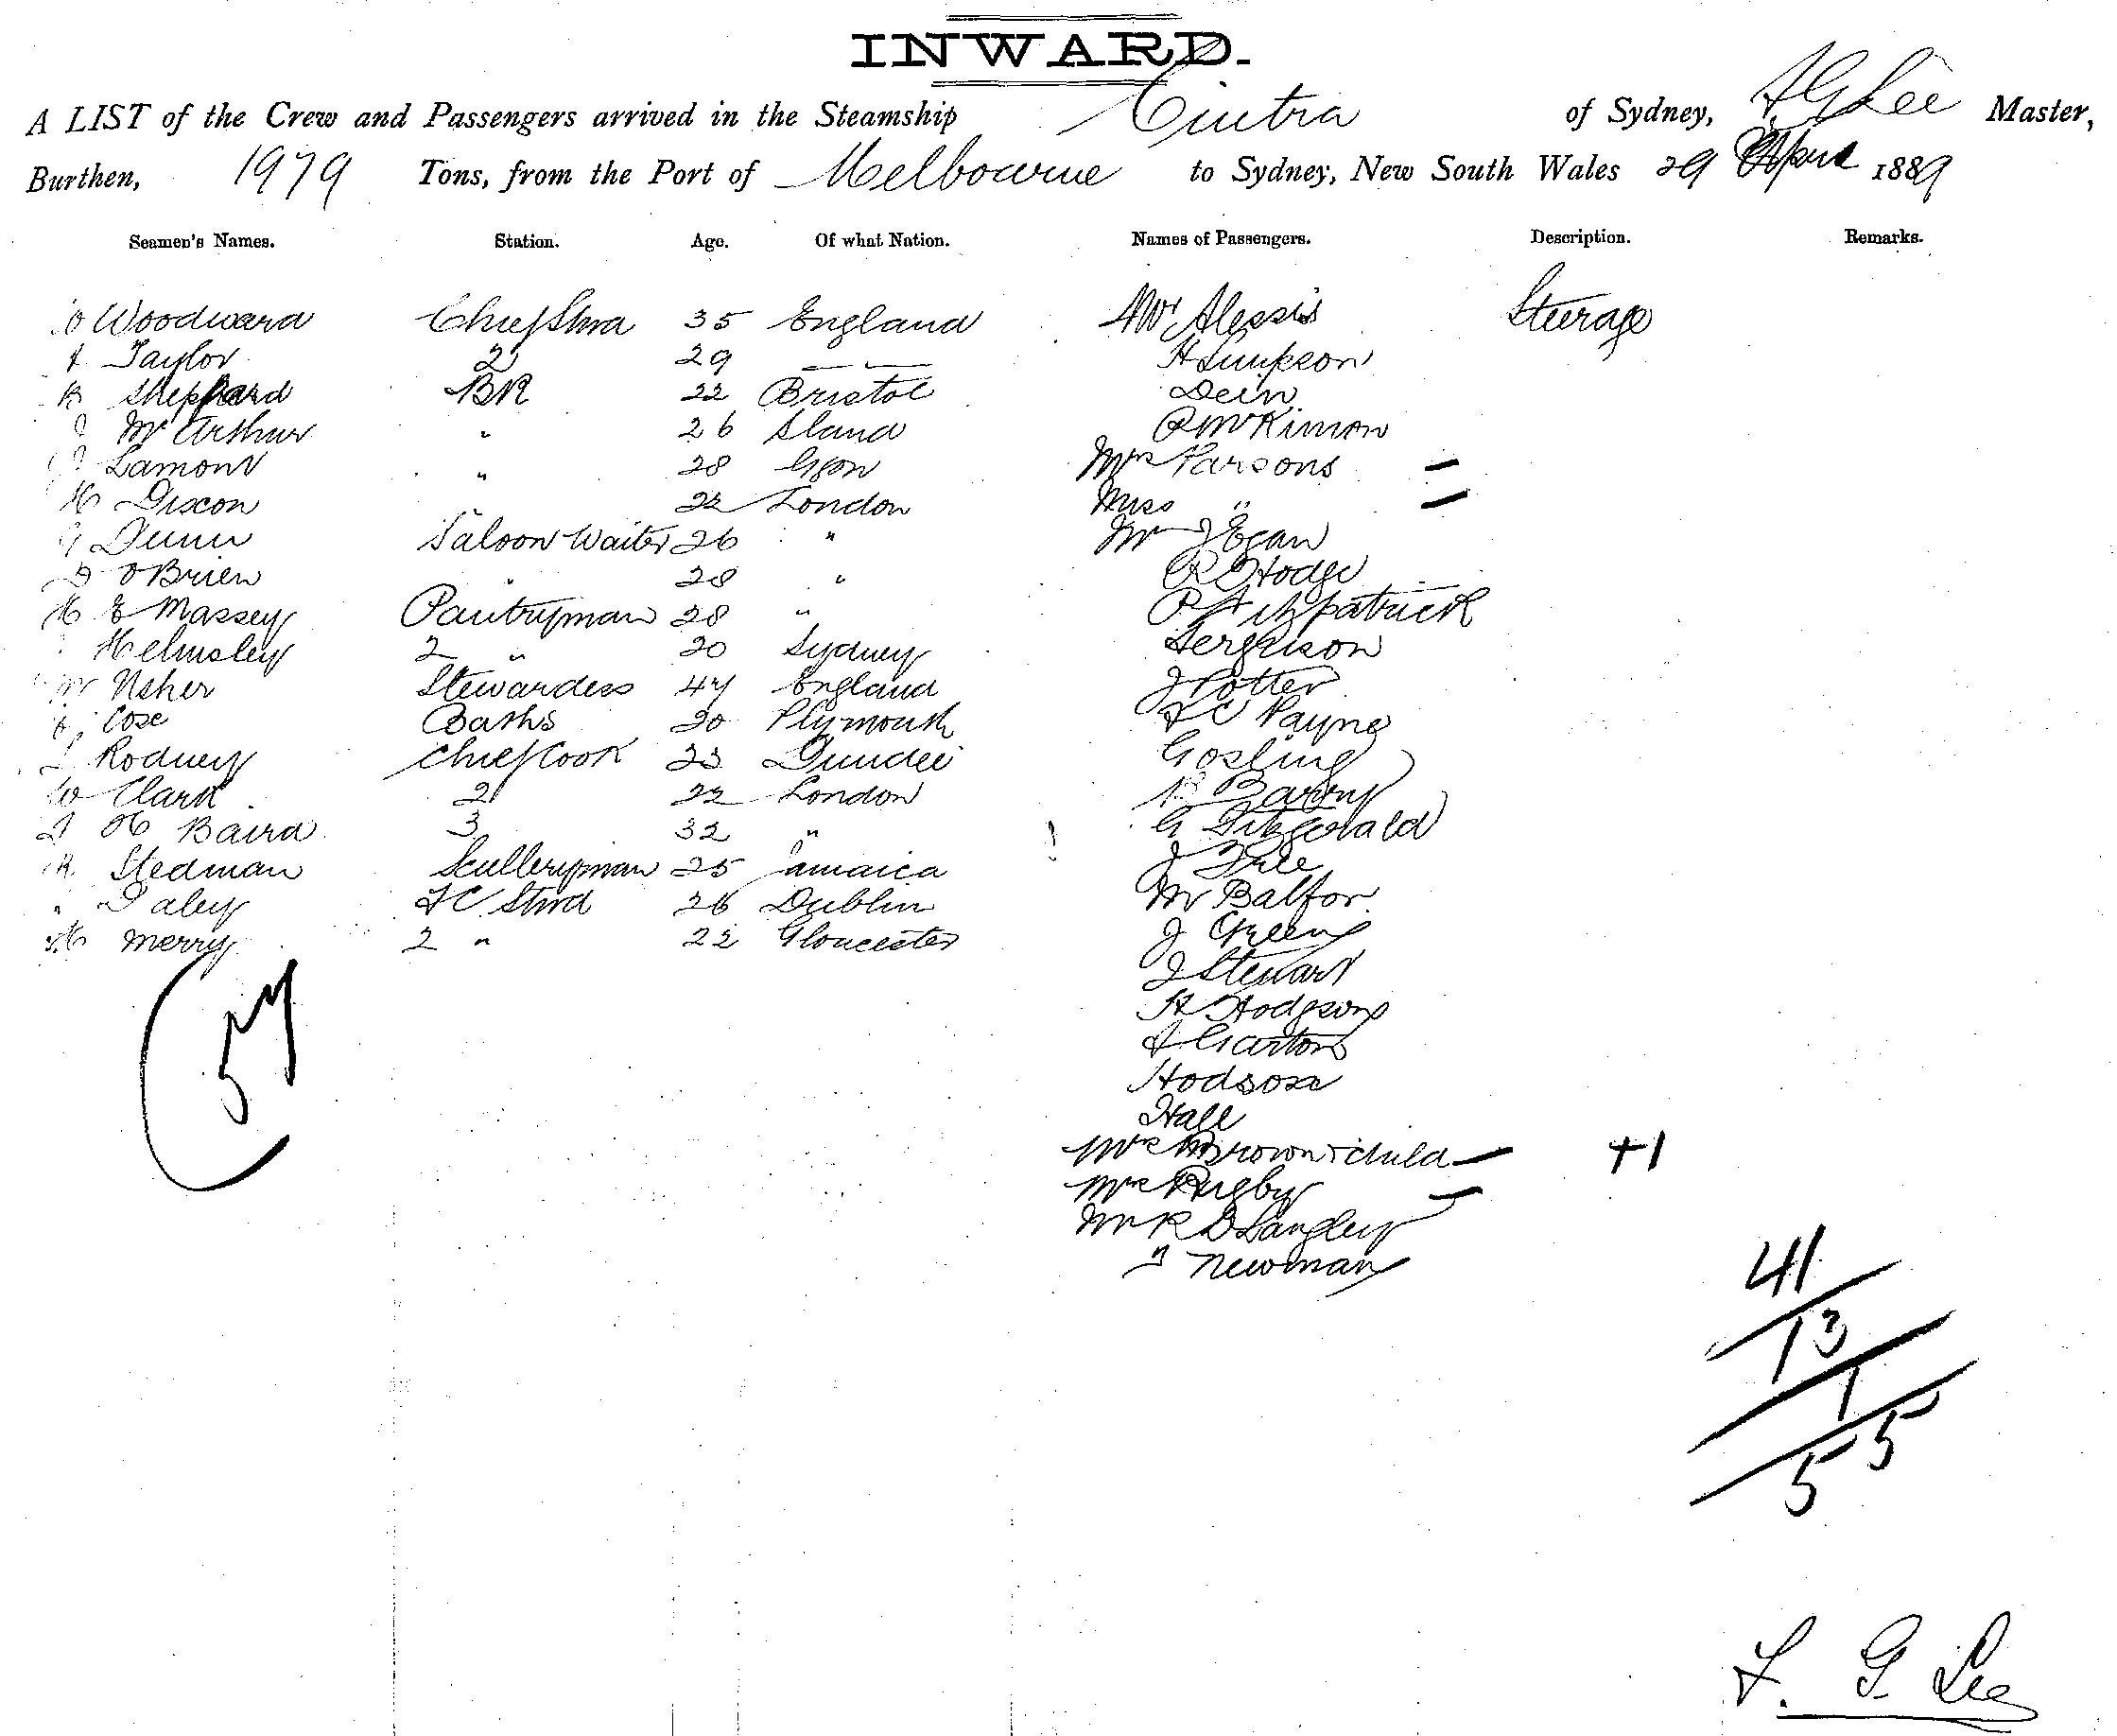 INWARD.
A LIST of the Crew and Passengers arrived in the Steamship Cintra of Sydney, F G Lee Master,
Burthen, 1979 Tons, from the Port of Melbourne to Sydney, New South Wales 29 April 1889
Seamen's Names. Station. Age. Of what Nation. Names of Passengers. Description. Remarks.
Woodward Chief Stwd 35 England Mr Alessis Steerage
Taylor 2 29 — — H Simpson
Sheppard BR 22 Bristol Dein
McArthur " 26 Sland R McKinnon
Lamont " 28 Mrs Parsons –
H Dixon 22 London Miss " –
Dunn Saloon Waiter 26 " Mr J Egan
D OBrien " 28 " R Hodge
H E Massey Pantryman 28 " P Fitzpatrick
Helmsley 2 " 20 Sydney Ferguson
Mrs Usher Stewardess 47 England J Potter
Cose Baths 20 Plymouth F C Payne
Rodney Chief Cook 23 Dundee Gosling
W Clark 2 22 London B Barry
H Baird 3 32 " G Fitzgerald
R. Stedman Sculleryman 25 Jamaica J
" Daley F C Stwd 26 Dublin Mr Balfor
H Merry 2 " 22 Gloucester J Green
J Stewart
H Hodgson
57
A Garton
Hodson
Hall
Mrs Brown & child – +1
Mrs Rigby –
Mr R D Langley
" Newman
41
13
1
55
F. G. Lee